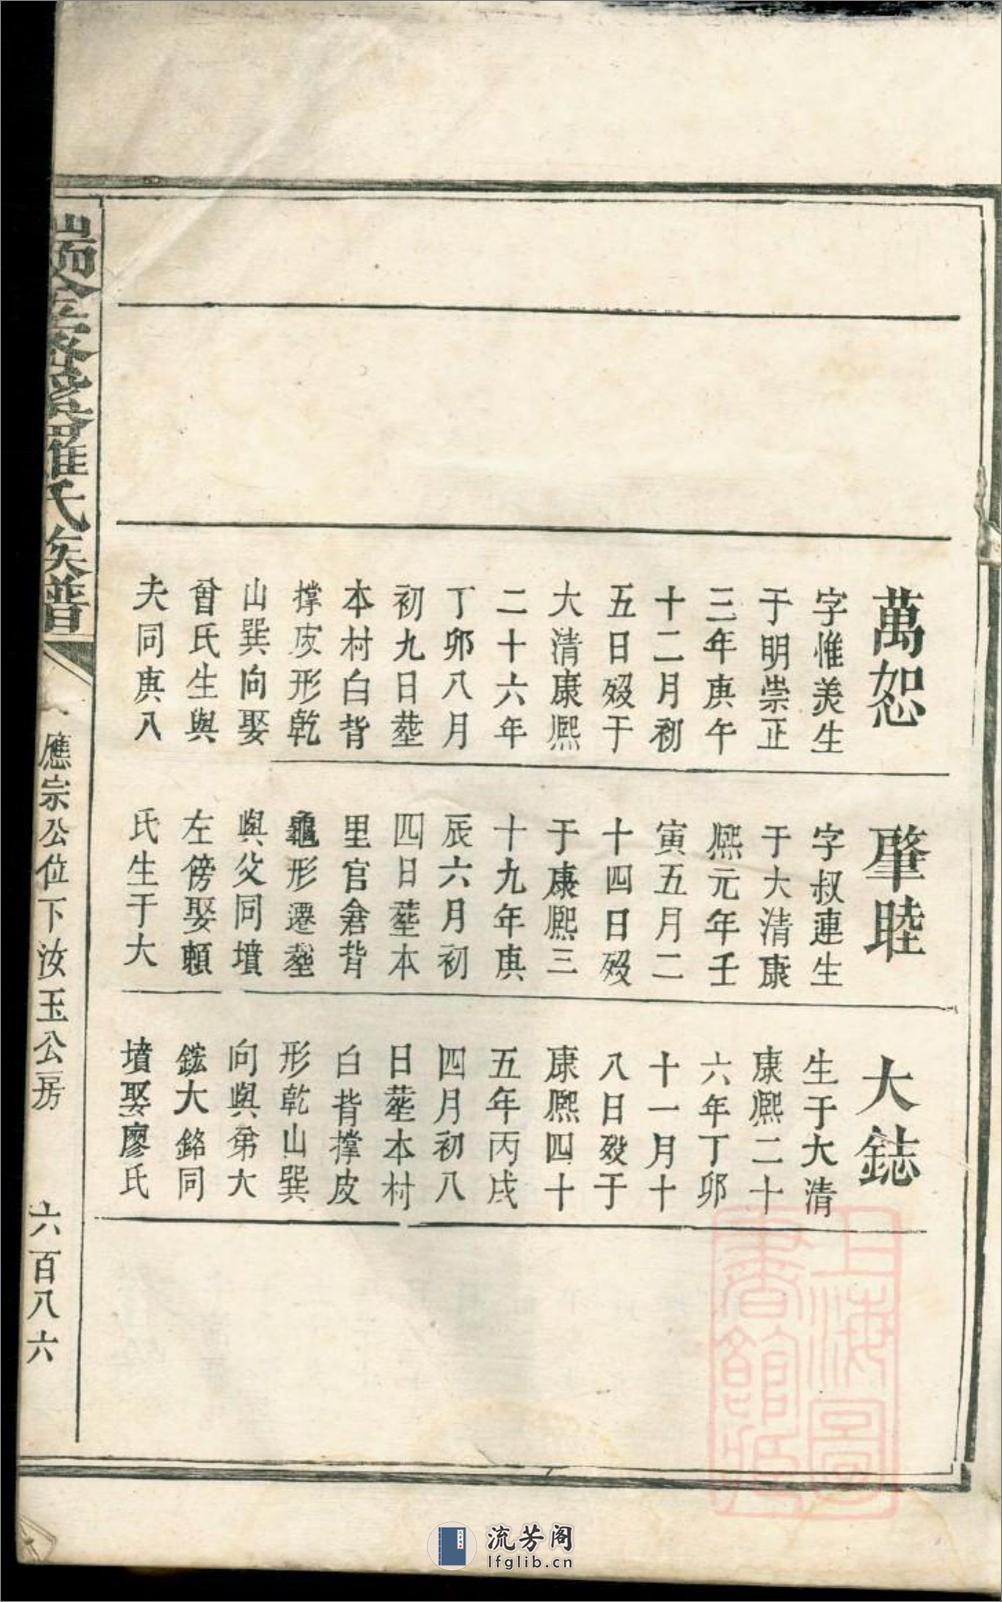 萬恕
字惟羙生
于明崇正
三年庚午
十二月初
五日殁于
大清康熙
二十六年
丁卯八月
初九日塟
本村白背
撑皮形乾
山巽向娶
曾氏生與
夫同庚八
肇睦
字叔連生
于大清康
熙元年壬
寅五月二
十四日殁
于康熙三
十九年庚
辰六月初
四日塟本
里官倉背
龜形遷塟
與父同墳
左傍娶賴
氏生于大
大鋕
生于大清
康熙二十
六年丁卯
十一月十
八日殁于
康熙四十
五年丙戌
四月初八
日塟本村
白背撑皮
形乾山巽
向與弟大
鋐大銘同
墳娶廖氏
羅氏族譜
應宗公位下汝玉公房
六百八六
上海圖書館藏
流芳阁
lfglib.cn